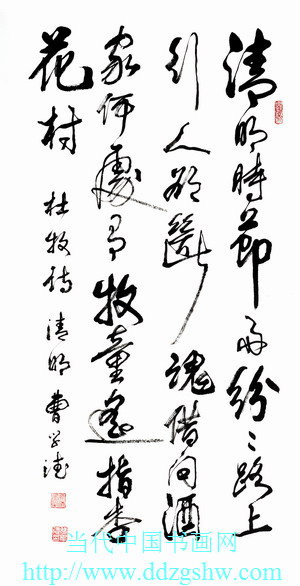 清明時節雨紛々路上
行人欲斷魂借問酒
家何處有牧童遙指杏
花村
杜牧詩 清明 曹学
当代中国书画网
http://www.ddzgshw.com